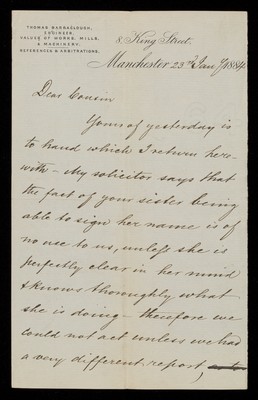 THOMAS BARRACLOUGH,
ENGINEER,
VALUER OF WORKS, MILLS,
& MACHINERY.
REFERENCES & ARBITRATIONS.
8 King Street,
Manchester 23rd Jany 1884
Dear Cousin
Yours of yesterday is
to hand which I return here-
with - My solicitor says that
the fact of your sister being
able to sign her name is of
no use to us, unless she is
perfectly clear in her mind
& knows thoroughly what
she is doing - therefore we
could not act unless we had
a very different report,